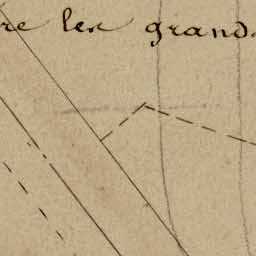 re les grands